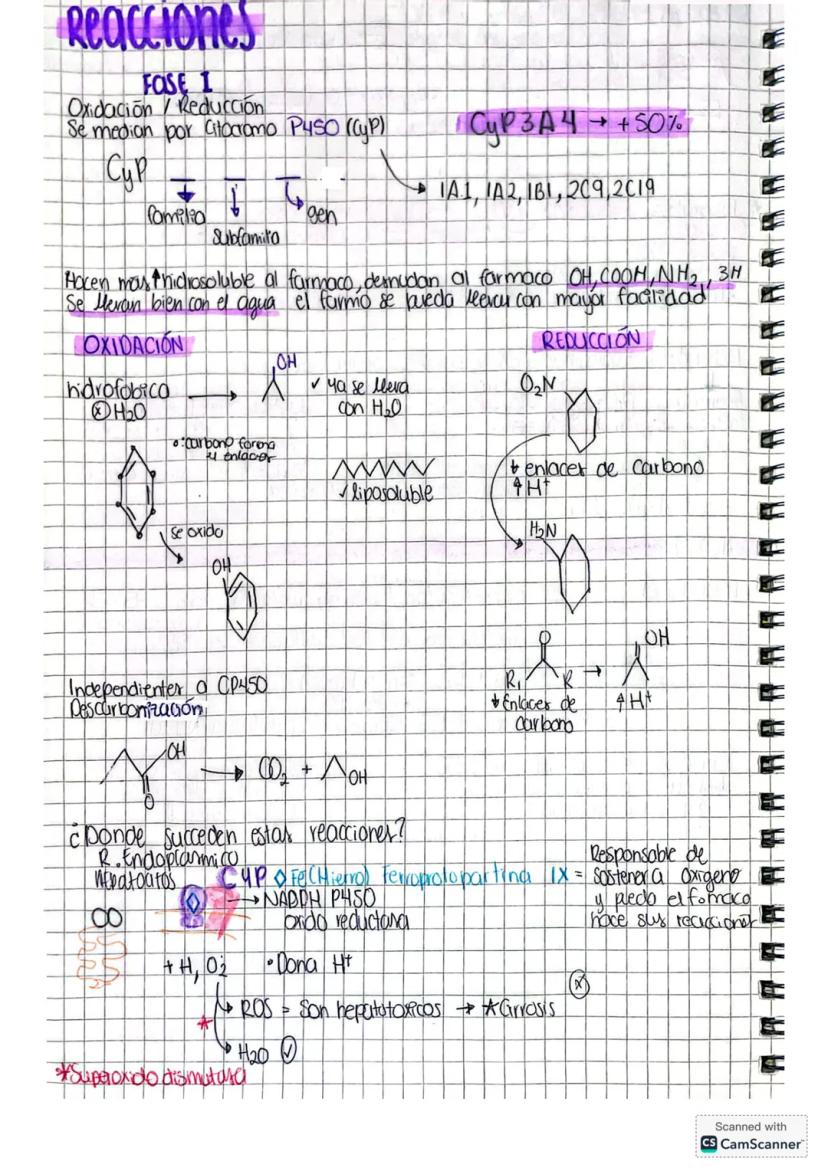 Reacciones
FASE I
Oxidación / Reducción
Se median por Citocromo P450 (CyP)
CyP3A4 → +50%
CyP _ _ _
familia
Subfamilia
gen
1A1, 1A2, 1B1, 2C9, 2C19
Hacen mas ↑ hidrosoluble al farmaco, desnudan al farmaco OH, COOH, NH2, SH
Se llevan bien con el agua el farmo se pueda llevar con mayor facilidad
OXIDACIÓN
hidrofobico
ⓧ H2O
OH
✓ ya se lleva
con H2O
•: carbono forma
4 enlaces
✓ liposoluble
se oxida
OH
REDUCCIÓN
O2N
↓ enlaces de carbono
↑ H+
H2N
O
R, R →
OH
↓ Enlaces de
carbono
↑ H+
Independientes a CP450
Descarbonización
OH
O
→ CO2 + OH
¿Donde succeden estas reacciones?
R. Endoplasmico
hepatocitos
CYP ◇ Fe (Hierro) Ferroprotopartina IX =
Responsable de
sostener a oxigeno
y puedo el farmaco
hace sus reacciones
→ NADDH P450
oxido reductasa
+ H, O2 • Dona H+
ROS = Son hepatotoxicos → *Cirrosis ⓧ
*
H2O ✓
*Superoxido dismutasa
Scanned with
CS CamScanner